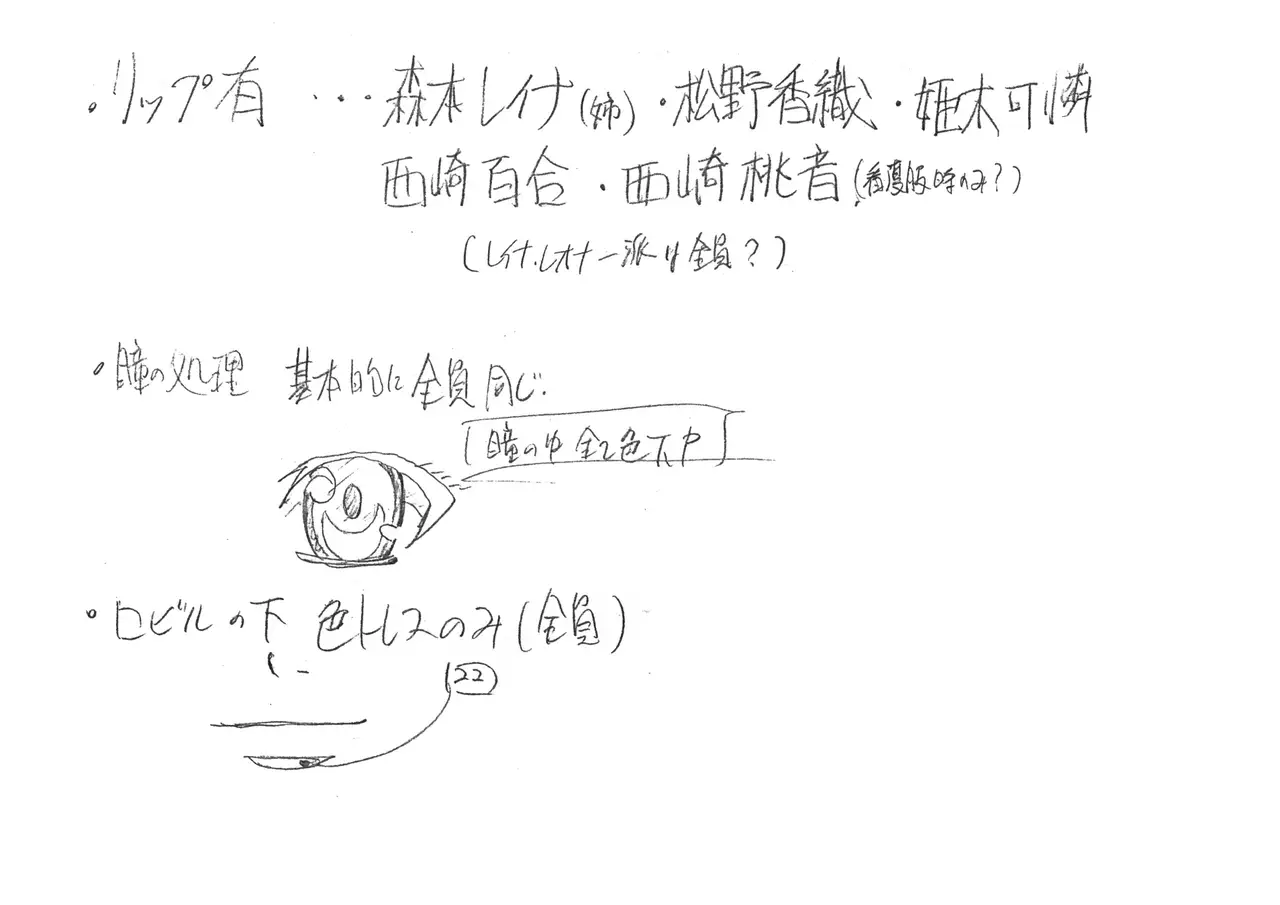 ・リップ有 ・・・森本レイナ(姉)・松野香織・姫木可憐
西崎百合・西崎桃音(看護服時のみ?)
(レイナ、レオナ一派は全員?)
・瞳の処理 基本的に全員同じ。
瞳の中 全て色下中
・口ビルの下 色トレスのみ(全員)
22